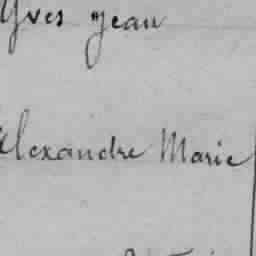 Yves Jean
Alexandre Marie